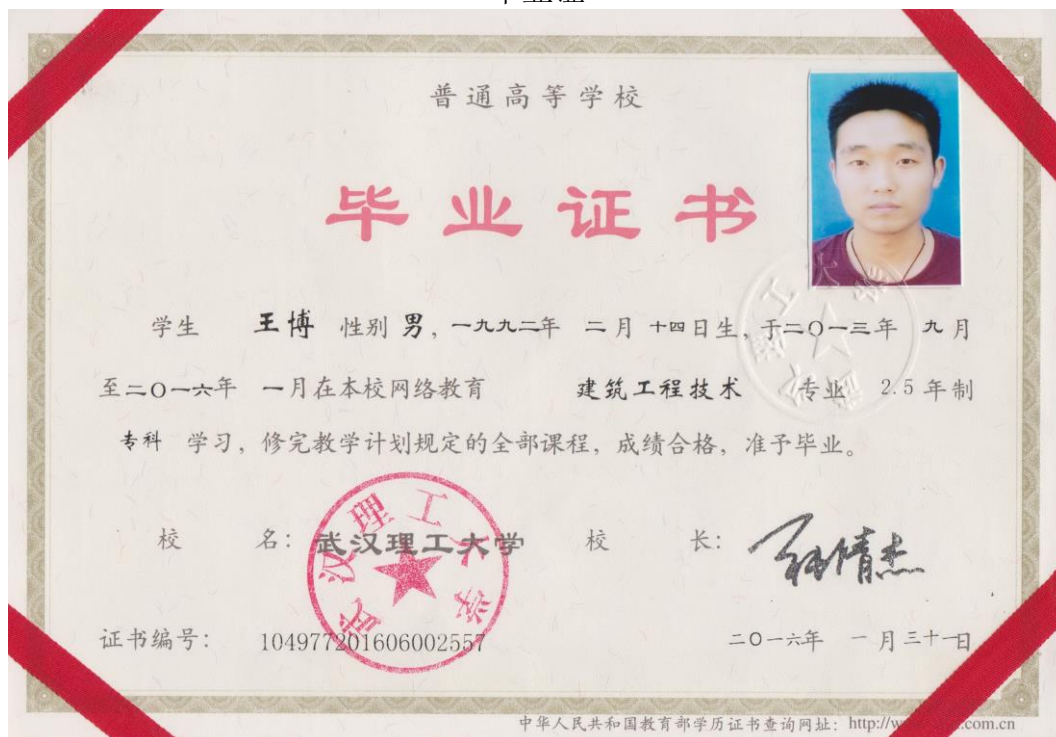 毕业证
普通高等学校
毕业证书
学生 王博 性别 男，一九九二年 二月 十四日生，于二〇一三年 九月
至二〇一六年 一月在本校网络教育 建筑工程技术 专业 2.5 年制
专科 学习，修完教学计划规定的全部课程，成绩合格，准予毕业。
校 名：武汉理工大学 校 长：
武汉理工大学
证书编号：104977201606002557 二〇一六年 一月三十一日
中华人民共和国教育部学历证书查询网址：http://w .com.cn